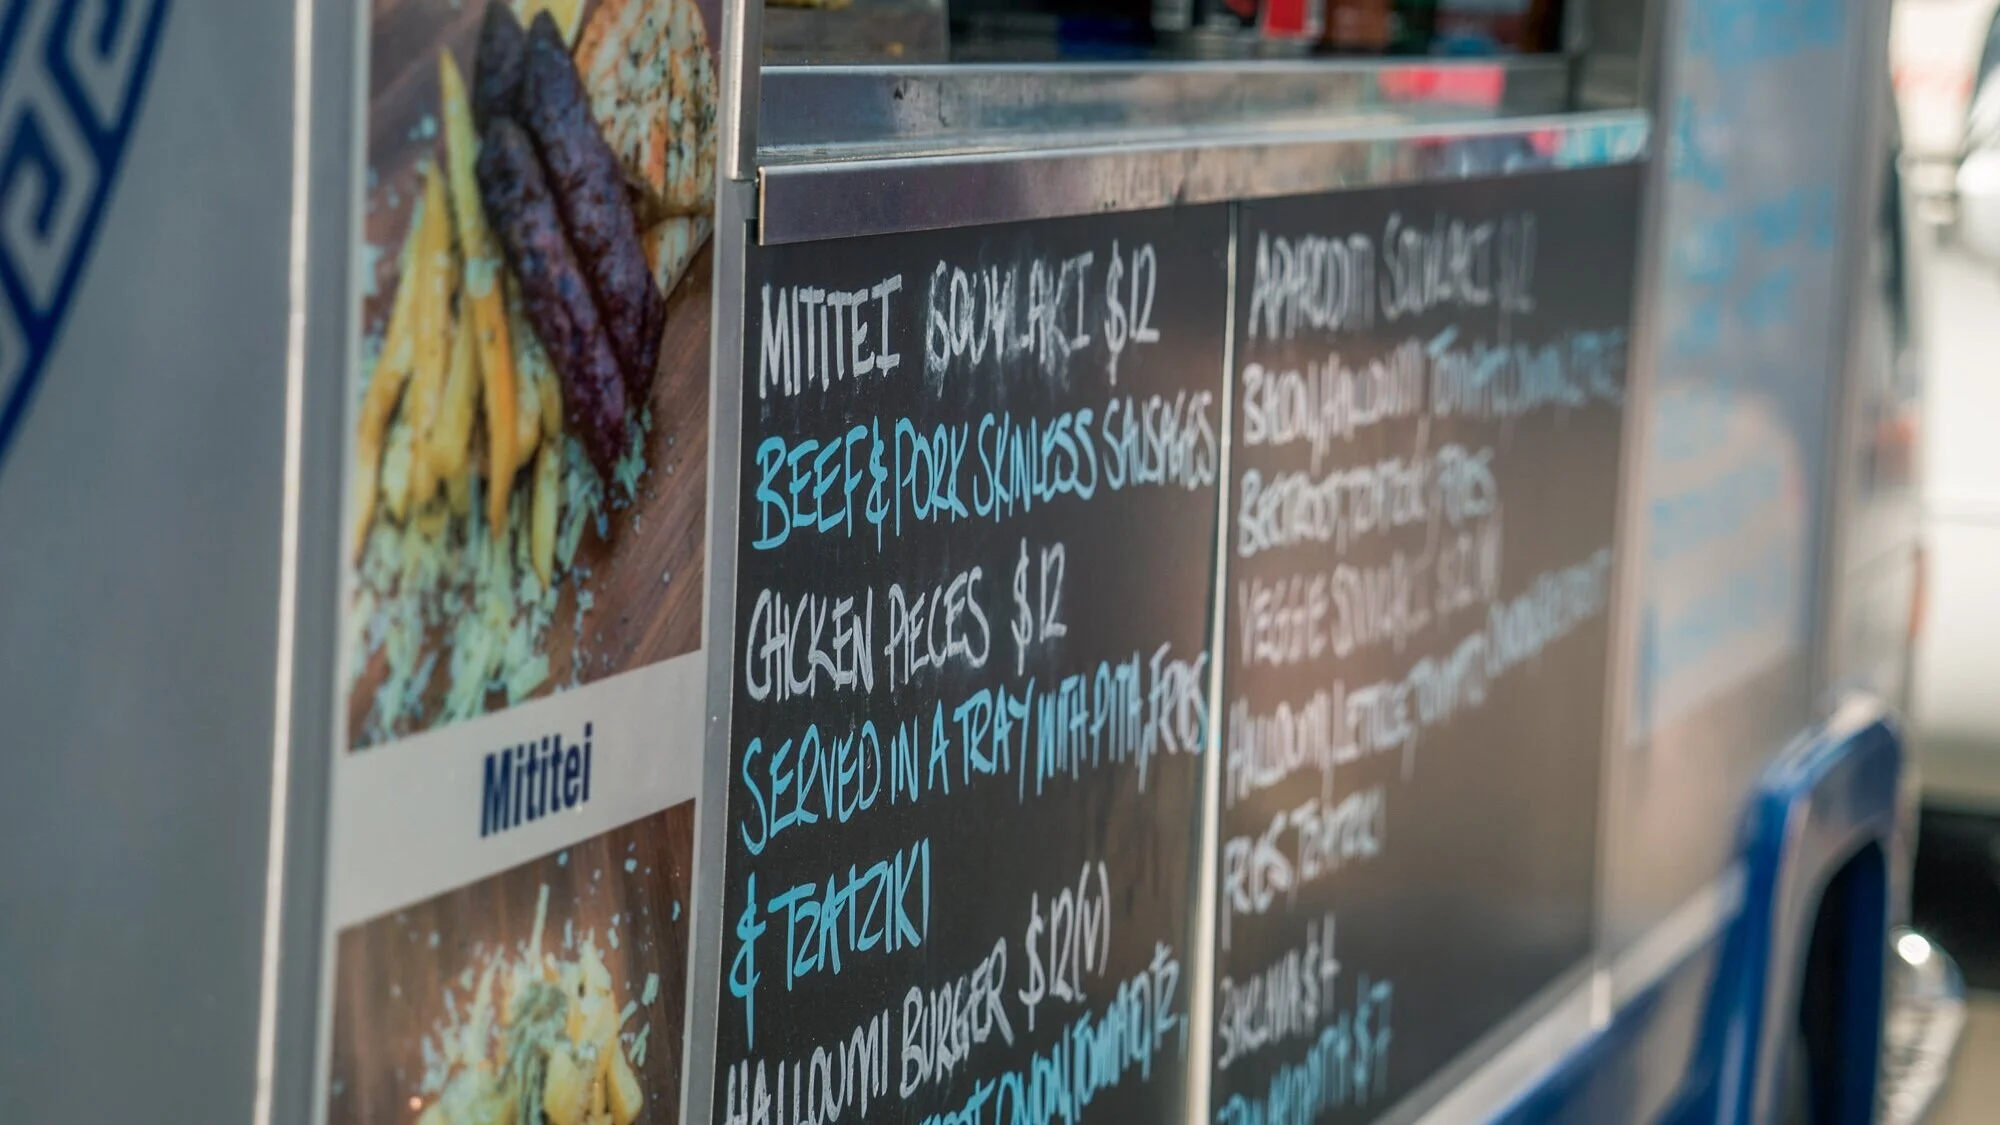 Mititei
MITITEI SOUVLAKI $12
BEEF & PORK SKINLESS SAUSAGES
CHICKEN PIECES $12
SERVED IN A TRAY WITH PITA, FRIES
& TZATZIKI
HALLOUMI BURGER $12(V)
ONION, TOMATO
APHRODITI SOUVLAKI $12
BACON, HALLOUMI TOMATO
BEETROOT, TZATZIKI, FRIES
VEGGIE SOUVLAKI $12(V)
HALLOUMI, LETTUCE, TOMATO
FRIES, TZATZIKI
BAKLAVA $4